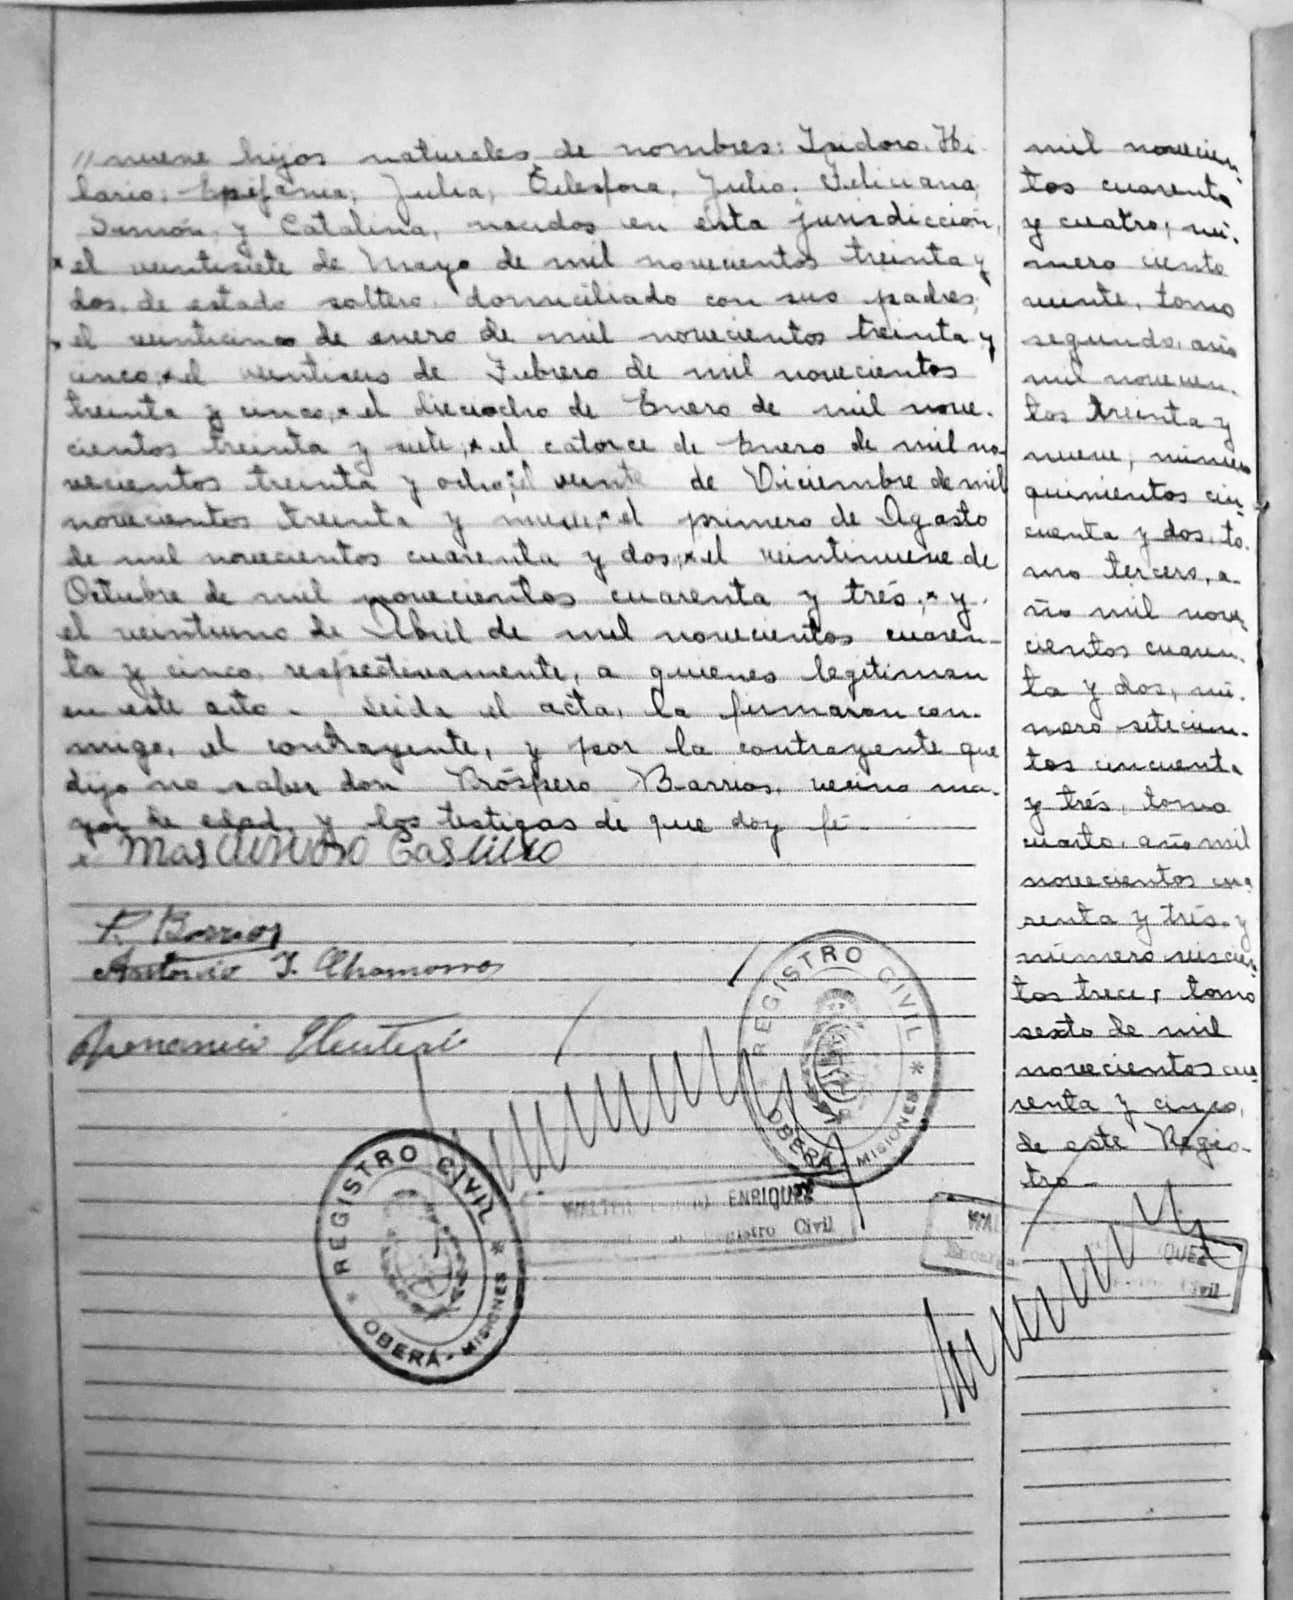 // nueve hijos naturales de nombres: Isidoro, Hi-
lario, Epifania, Julia, Telesfora, Julio, Feliciana,
Simón y Catalina, nacidos en esta jurisdicción,
el veintisiete de Mayo de mil novecientos treinta y
dos, de estado soltero, domiciliado con sus padres,
el veinticinco de enero de mil novecientos treinta y
cinco, el veintiseis de Febrero de mil novecientos
treinta y cinco, el dieciocho de Enero de mil nove-
cientos treinta y siete, el catorce de Enero de mil no-
vecientos treinta y ocho, el veinte de Diciembre de mil
novecientos treinta y nueve, el primero de Agosto
de mil novecientos cuarenta y dos, el veintinueve de
Octubre de mil novecientos cuarenta y trés, y
el veintiuno de Abril de mil novecientos cuaren-
ta y cinco, respectivamente, a quienes legitiman
en este acto. Leida el acta, la firmaron con-
migo, el contrayente, y por la contrayente que
dijo no saber don Próspero Barrios, vecino ma-
yor de edad, y los testigos de que doy fé.
Castillo
P. Barrios
Antonio J. Chamorro
REGISTRO CIVIL
OBERÁ - MISIONES
REGISTRO CIVIL
OBERÁ - MISIONES
WALTER ENRIQUEZ
Registro Civil
mil novecien-
tos cuarenta
y cuatro, nú-
mero ciento
veinte, tomo
segundo, año
mil novecien-
tos treinta y
nueve, número
quinientos cin-
cuenta y dos, to-
mo tercero, a-
ño mil nove-
cientos cuaren-
ta y dos, nú-
mero setecien-
tos cincuenta
y trés, tomo
cuarto, año mil
novecientos cua-
renta y trés y
número seiscien-
tos trece, tomo
sexto de mil
novecientos cua-
renta y cinco,
de este Regis-
tro -
QUEZ
Civil